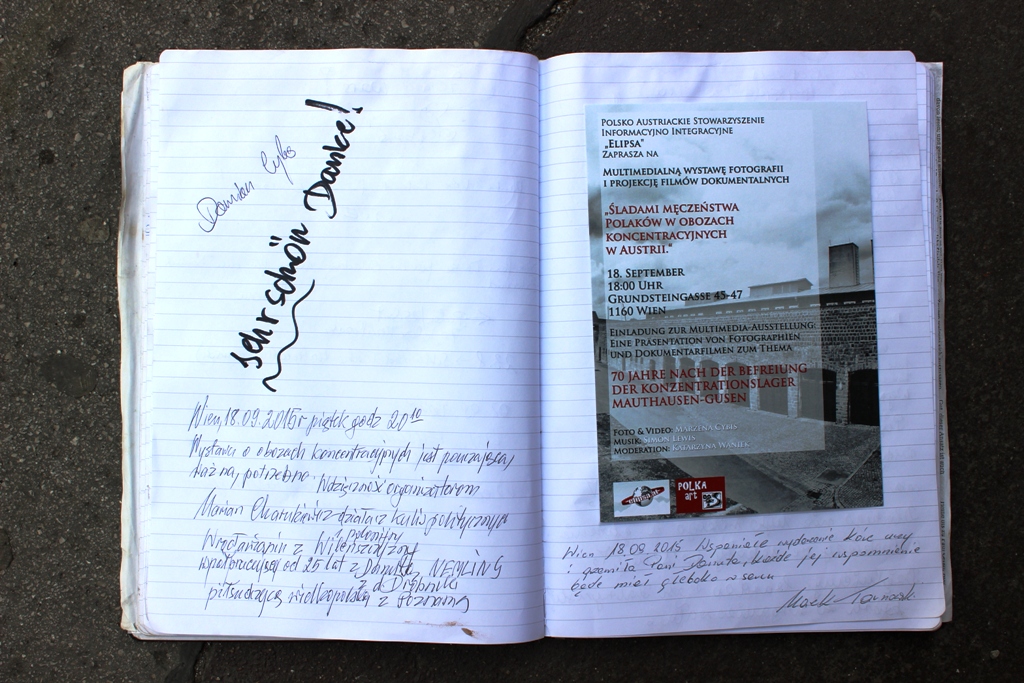 Damian Cybs
Sehr schön Danke!
Wien, 18.09.2015 r piątek godz 20 10
Wystawa o obozach koncentracyjnych jest poruszająca,
ważna, potrzebna. Wdzięczność organizatorom
Marian działacz politycznych
polonijny
z Wileńszczyzny
od 25 lat z Danutą NEYLING
z
z Poznania
POLSKO AUSTRIACKIE STOWARZYSZENIE
INFORMACYJNO INTEGRACYJNE
„ELIPSA"
ZAPRASZA NA
MULTIMEDIALNĄ WYSTAWĘ FOTOGRAFII
I PROJEKCJĘ FILMÓW DOKUMENTALNYCH
„ŚLADAMI MĘCZEŃSTWA
POLAKÓW W OBOZACH
KONCENTRACYJNYCH
W AUSTRII."
18. SEPTEMBER
18:00 UHR
GRUNDSTEINGASSE 45-47
1160 WIEN
EINLADUNG ZUR MULTIMEDIA-AUSSTELLUNG:
EINE PRÄSENTATION VON FOTOGRAPHIEN
UND DOKUMENTARFILMEN ZUM THEMA
70 JAHRE NACH DER BEFREIUNG
DER KONZENTRATIONSLAGER
MAUTHAUSEN-GUSEN
FOTO & VIDEO: MARZENA CYBIS
MUSIK: SIMON LEWIS
MODERATION: KATARZYNA WANIEK
POLKA
art
Wien 18.09.2015 Wspaniałe wydarzenie
i Pani Danuta, każde jej wspomnienie
będę miał głęboko w sercu